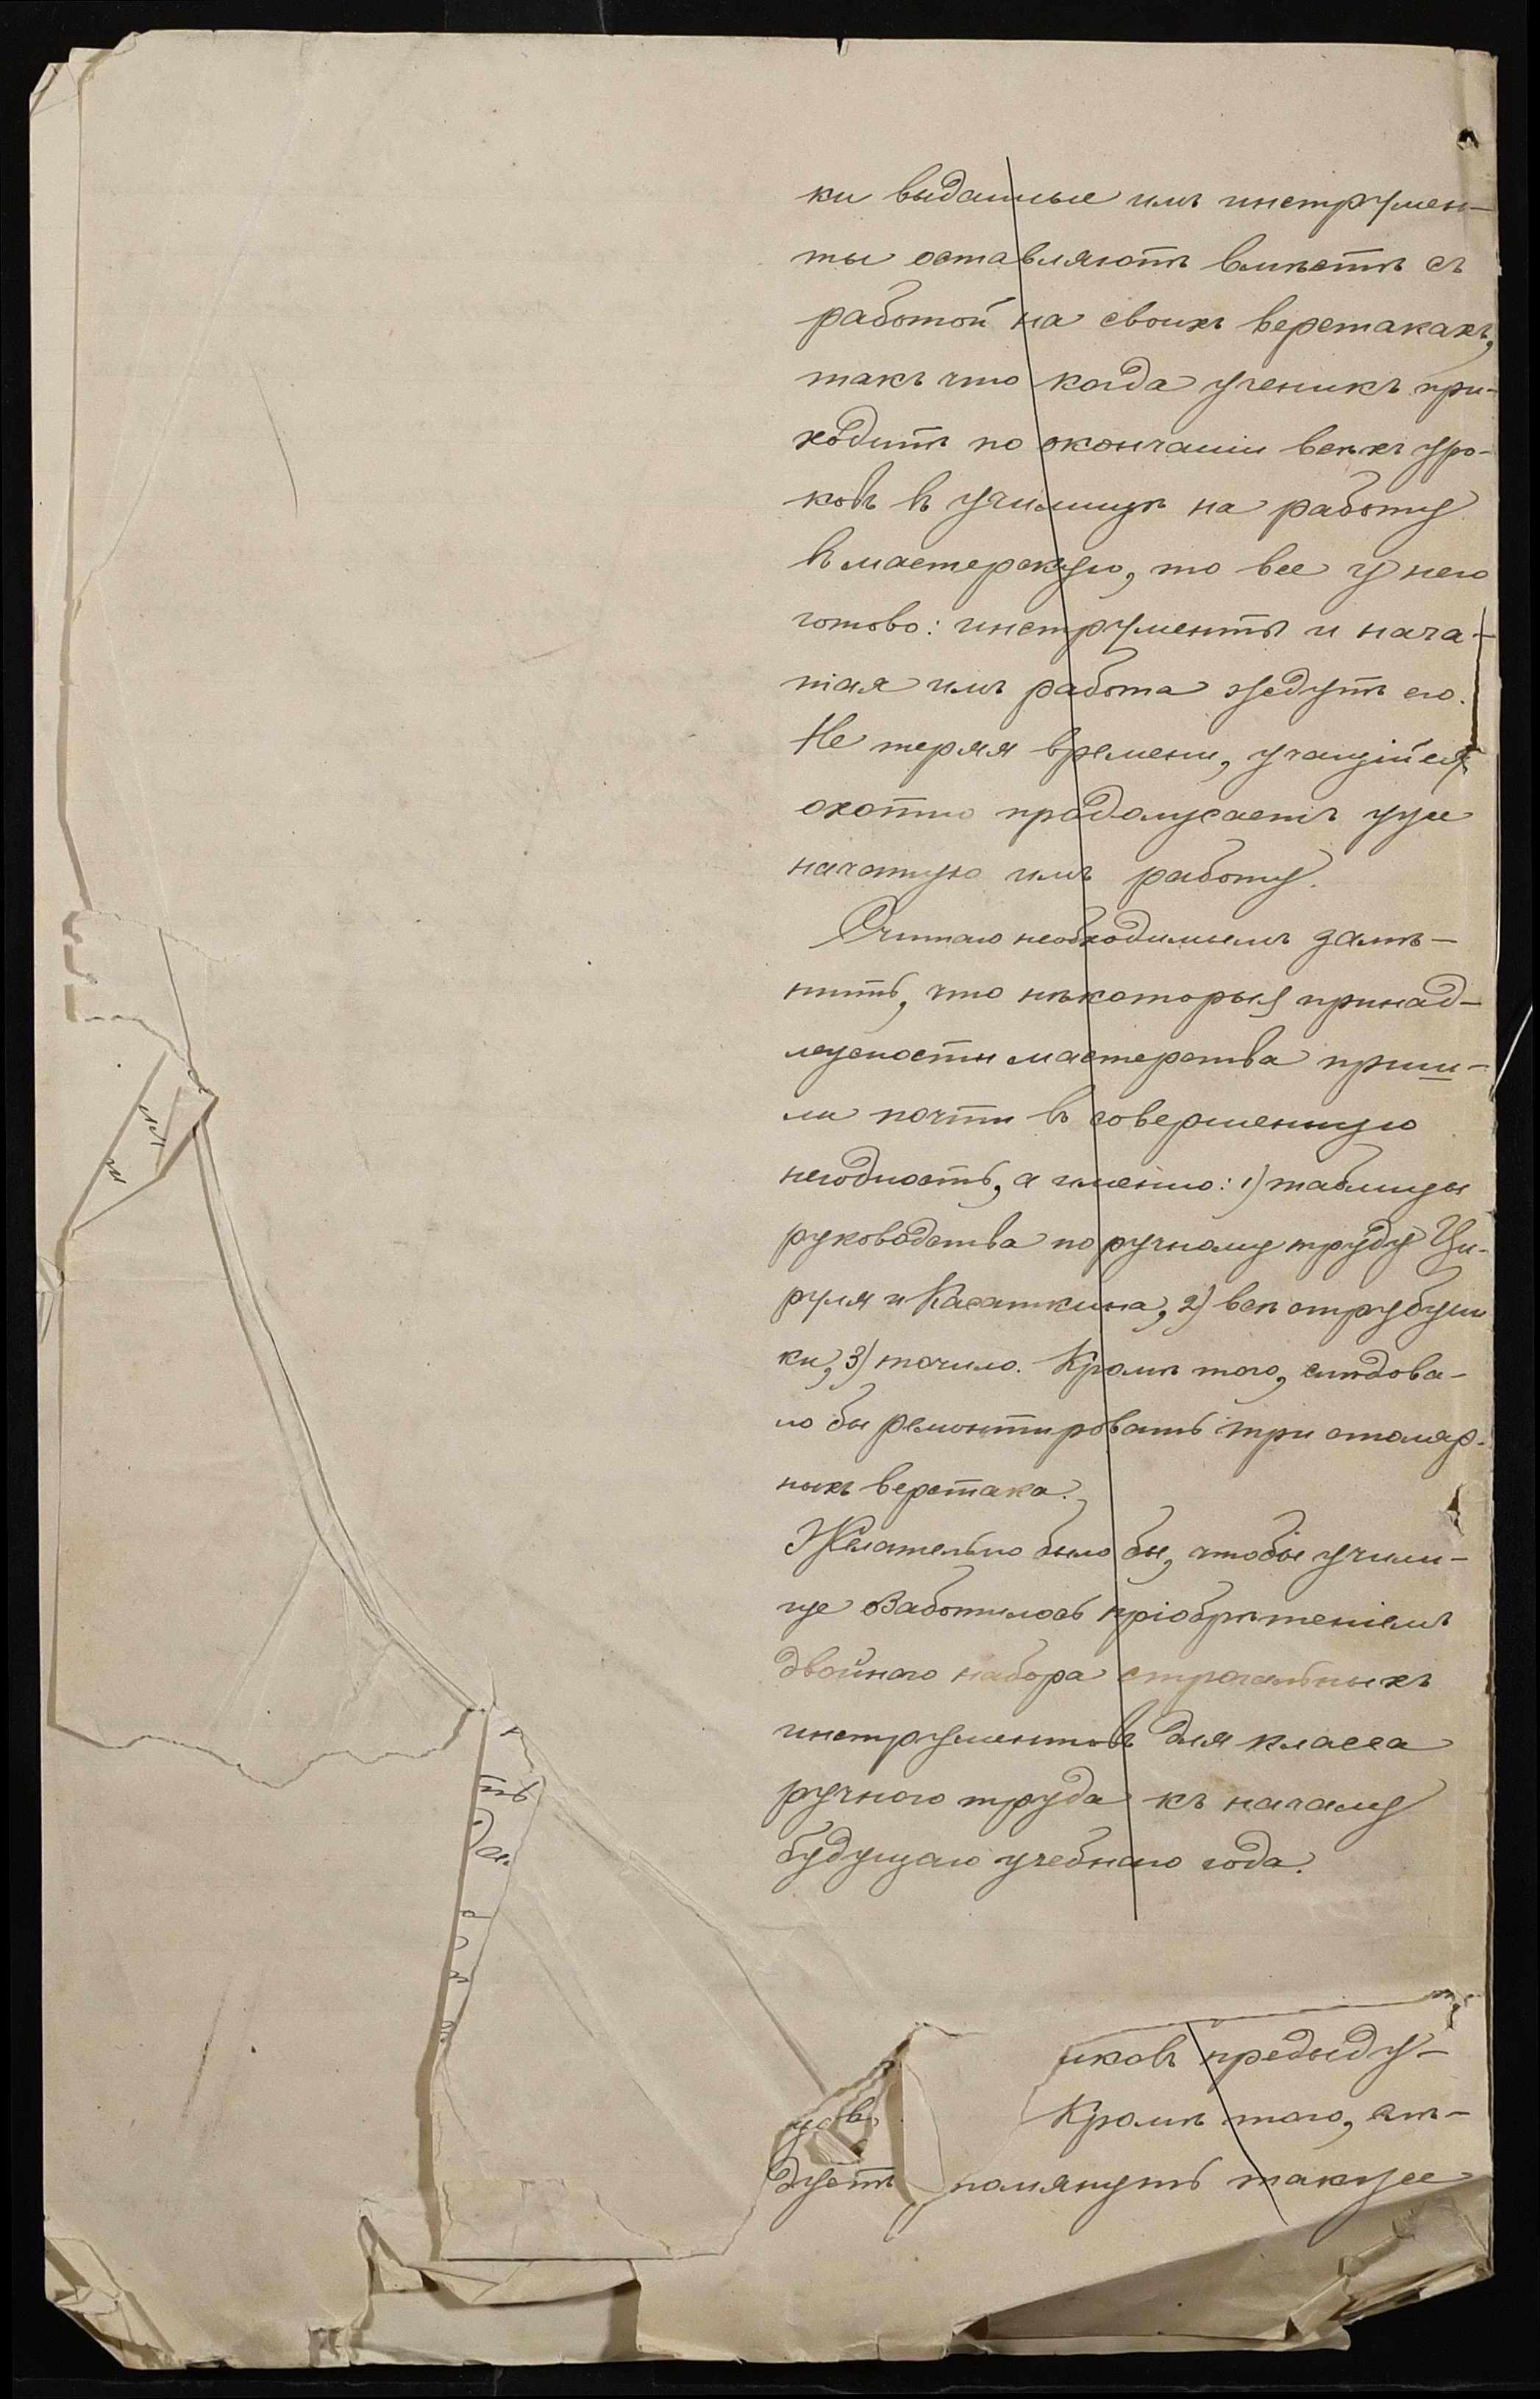 ки выданные имъ инструмен-
ты оставляютъ вмѣстѣ съ
работой на своихъ верстакахъ,
такъ что когда ученикъ при-
ходитъ по окончаніи всѣхъ уро-
ковъ въ училищѣ на работу
въ мастерскую, то все у него
готово: инструменты и нача-
тая имъ работа ждутъ его.
Не теряя времени, учащійся
охотно продолжаетъ уже
начатую имъ работу.
Считаю необходимымъ замѣ-
тить, что нѣкоторыя принад-
лежности мастерства приш-
ли почти въ совершенную
негодность, а именно: 1) таблицы
руководства по ручному труду Ци-
руля и Касаткина, 2) всѣ струбцин
ки, 3) точило. Кромѣ того, слѣдова-
ло бы ремонтировать три столяр-
ныхъ верстака.
Желательно было бы, чтобы учили-
ще озаботилось пріобрѣтеніемъ
двойного набора строгальныхъ
инструментовъ для класса
ручного труда къ началу
будущаго учебнаго года.
иковъ предыду-
Кромѣ того, слѣ-
дуетъ помянуть также